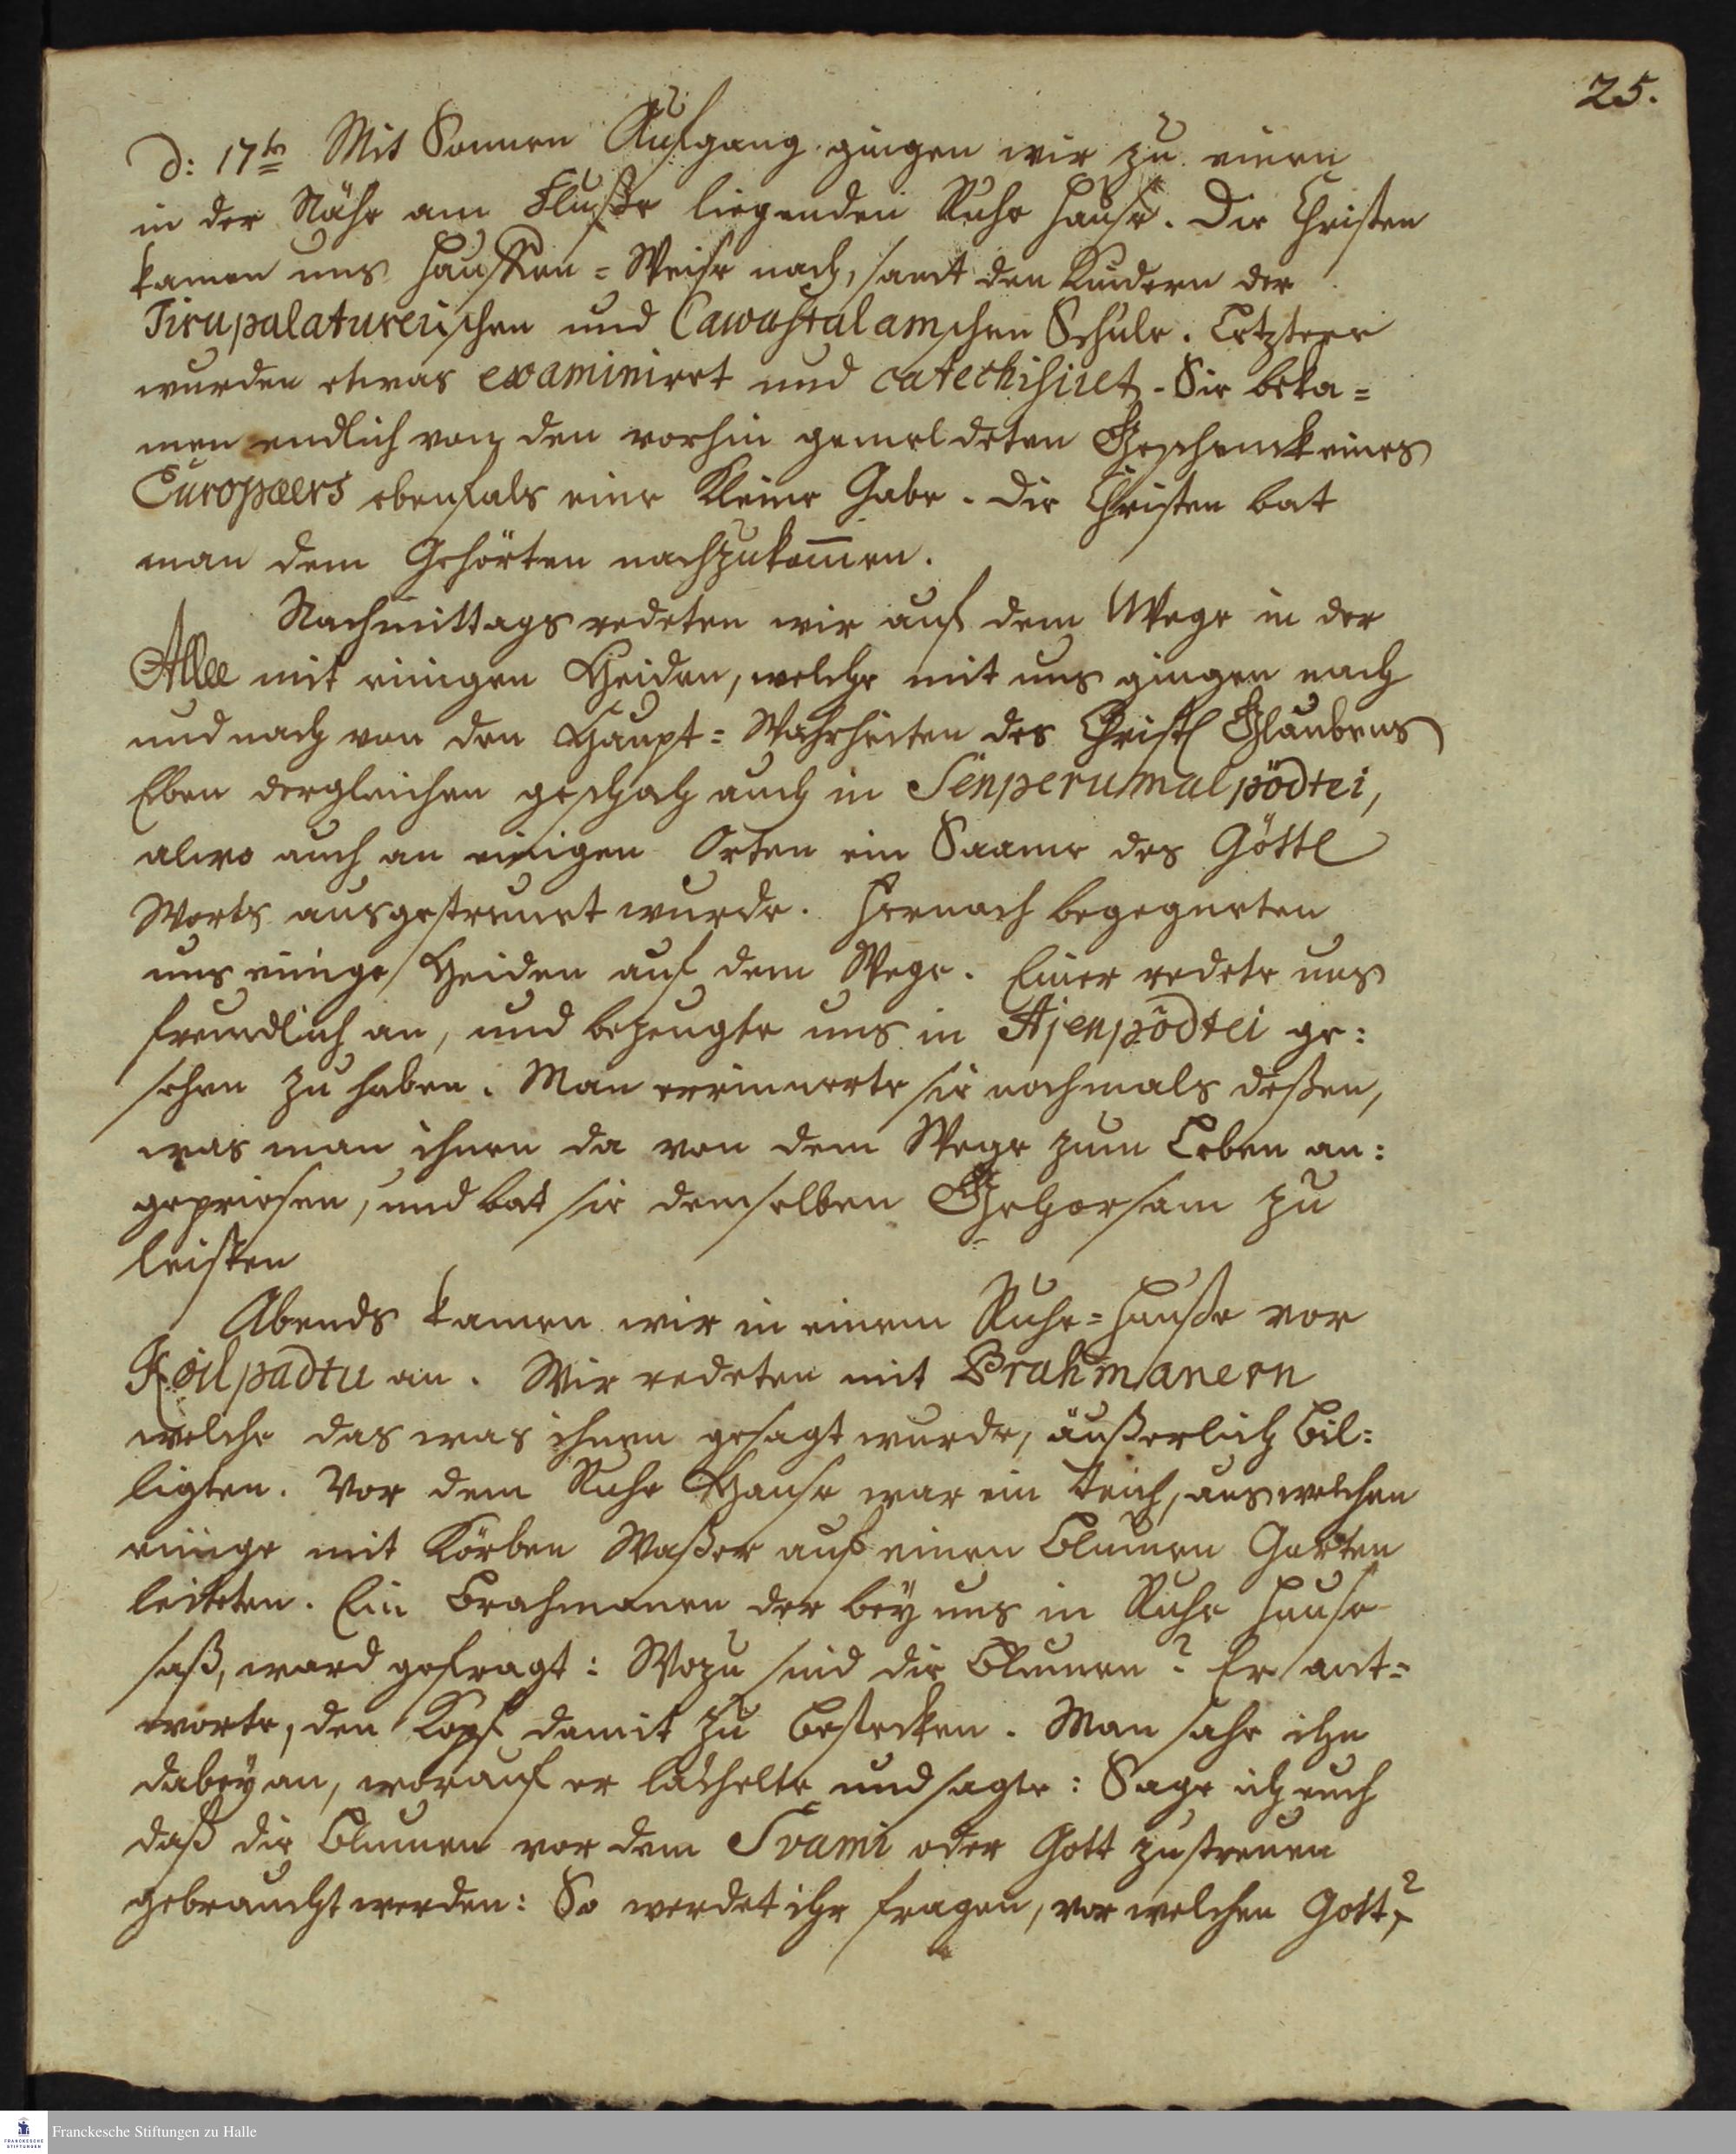 25.
d: 17te Mit Sonnen Aufgang gingen wir zu einem
in der Nähe am Fluße liegenden Ruhe Hause. Die Christen
kamen uns Hauffen=Weise nach, samt den Kindern der
Tirupalatureischen und Cawastalamschen Schule. Letztere
wurden etwas examiniret und catechisiret. Sie beka=
men endlich von den vorhin gemeldeten Geschenck eines
Europæers ebenfals eine kleine Gabe. Die Christen bat
man dem Gehörten nachzukom̅en.
Nachmittags redeten wir auf dem Wege in der
Allee mit einigen Heiden, welche mit uns gingen nach
und nach von den Haupt=Wahrheiten des Christl Glaubens
Eben dergleichen geschah auch in Senperumalpödtei,
alwo auch an einigen Orten ein Saame des Göttl
Worts ausgestreuet wurde. Hernach begegneten
uns einige Heiden auf dem Wege. Einer redete uns
freundlich an, und bezeugte uns in Ajenpödtei ge:
sehen zu haben. Man errinnerte sie nochmals deßen,
was man ihnen da von dem Wege zum Leben an:
gepriesen, und bat sie demselben Gehorsam zu
leisten
Abends kamen wir in einem Ruhe=Hauße vor
Koilpadtu an. Wir redeten mit Brahmanern
welche das was ihnen gesagt wurde, äußerlich bil:
ligten. Vor dem Ruhe Hause war ein Teich, aus welchen
einige mit Körben Waßer auf einen Blumen Garten
leiteten. Ein Brahmanen der bey uns in Ruhe Hause
saß, ward gefragt: Wozu sind die Blumen? Er ant=
worte, den Kopf damit zu bestecken. Man sahe ihn
dabey an, worauf er lächelte und sagte: Sage ich euch
daß die Blumen vor dem Svami oder Gott zustreuen
gebraucht werden: So werdet ihr fragen, vor welchen Gott?
Franckesche Stiftungen zu Halle